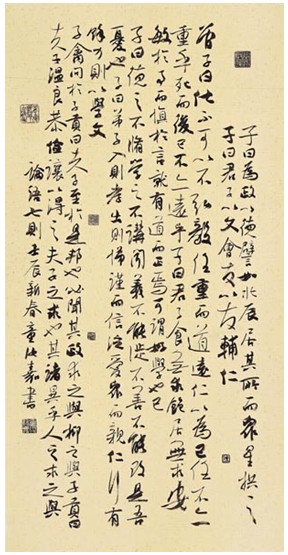 子曰為政以德譬如北辰居其所而眾星拱之
子曰君子以文會友以友輔仁
曾子曰士不可以不弘毅任重而道遠仁以為己任不亦
重乎死而後已不亦遠乎子曰君子食無求飽居無求安
敏於事而慎於言就有道而正焉可謂好學也已
子曰德之不脩學之不講聞義不能徙不善不能改是吾
憂也子曰弟子入則孝出則悌謹而信汎愛眾而親仁行有
餘力則以學文
子禽問於子貢曰夫子至於是邦也必聞其政求之與抑與之與子貢曰
夫子溫良恭儉讓以得之夫子之求之也其諸異乎人之求之與
論語七則壬辰新春童汝嘉書